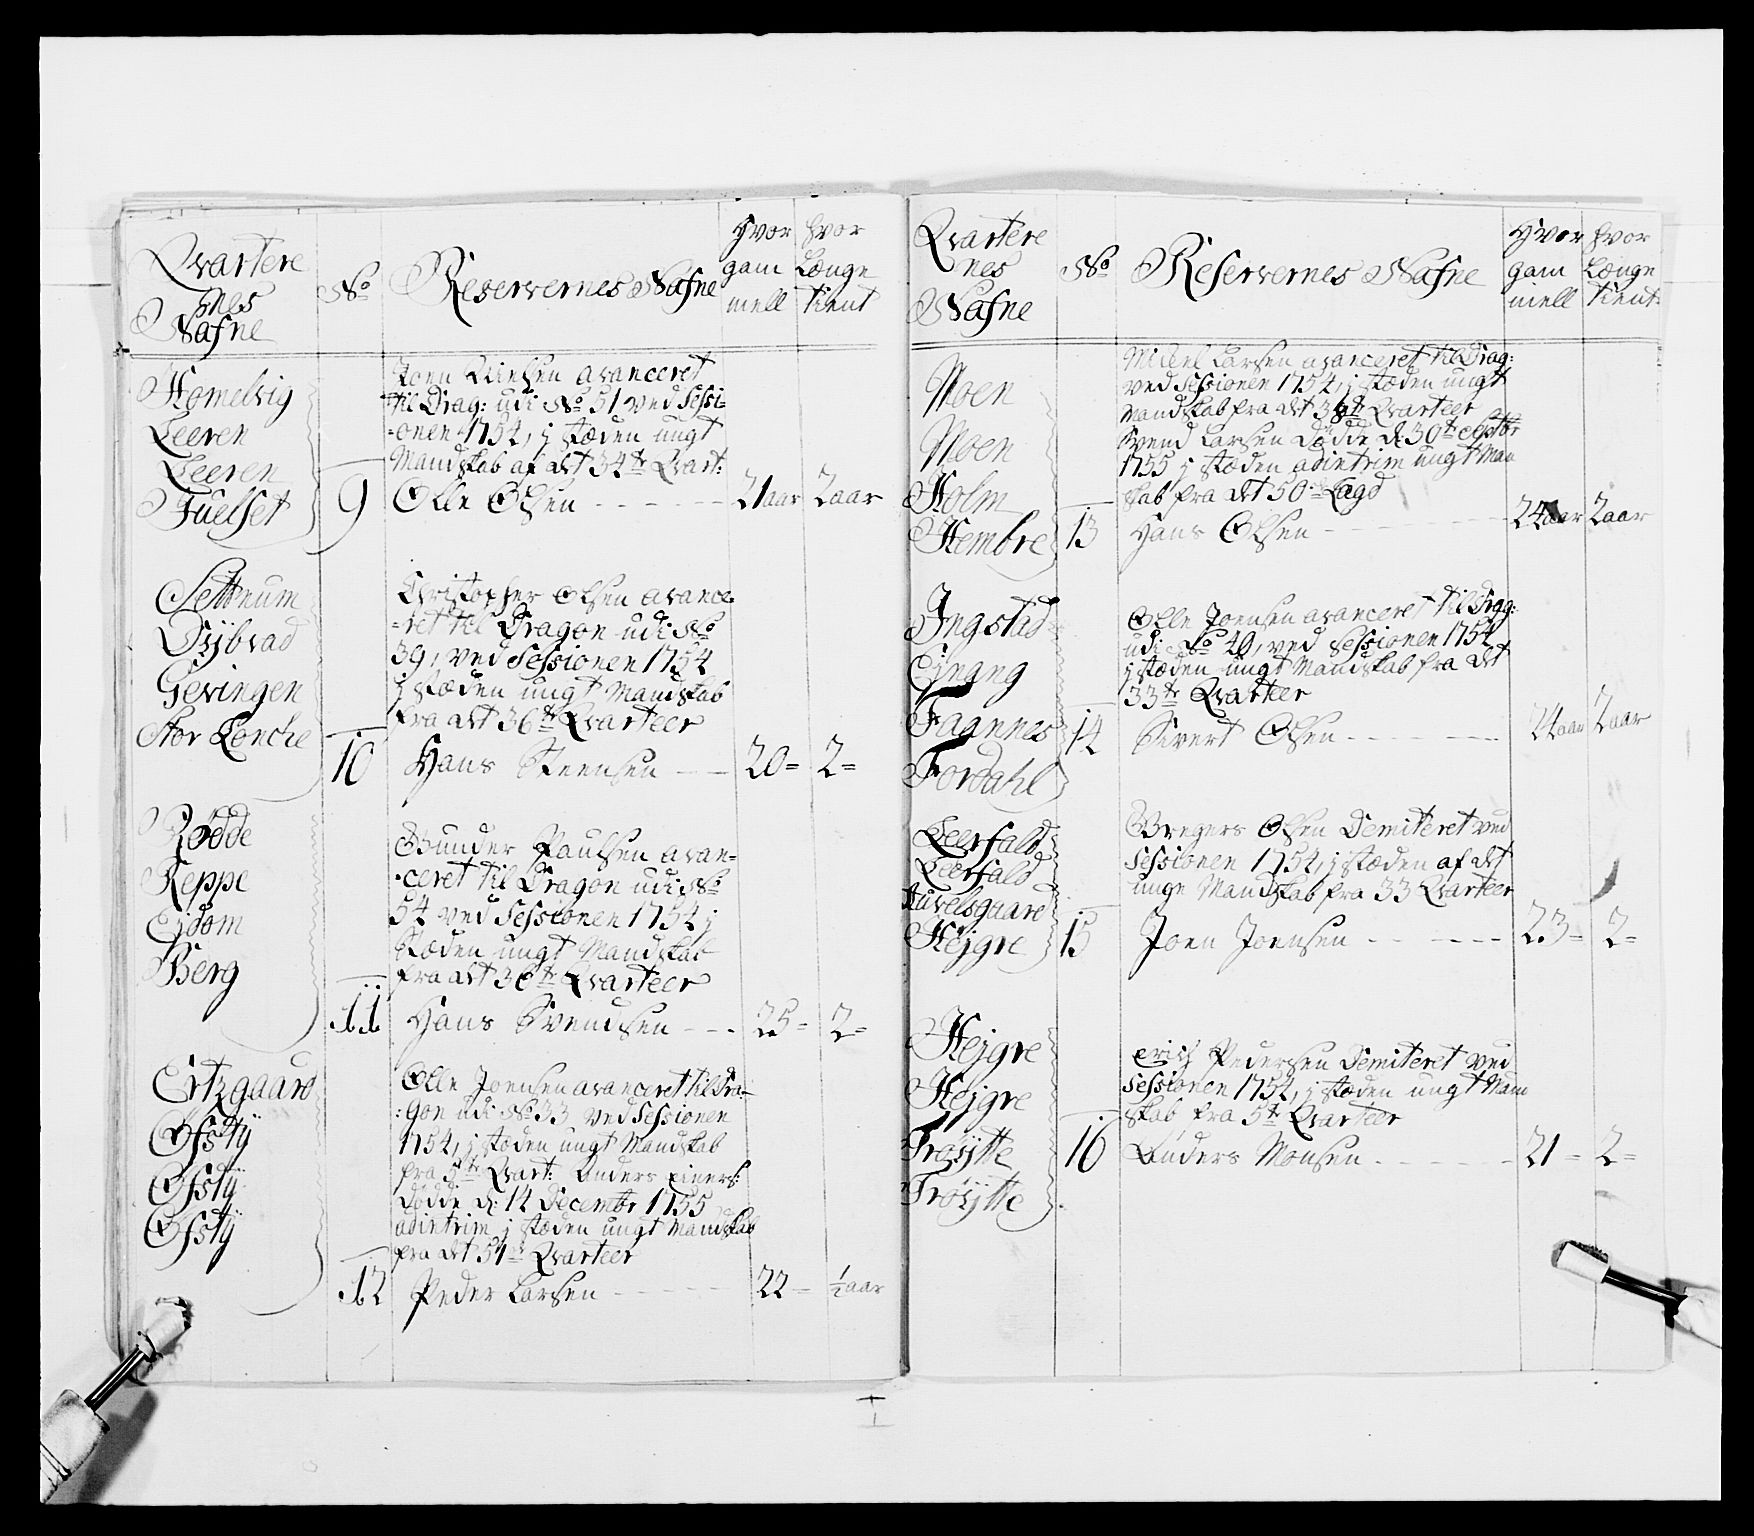 Qvartere
nes
Nafne
No
Reservernes Nafne
Hvor
gam
mell
hvor
Længe
tient
Homelvig
Leeren
Leeren
Fuelset
9
Joen avanceret
til Drag: udi No 51 ved Sessi-
-onen 1754, j stæden ungt
Mandskab af det 34te Qvart:
Olle Olsen
21 aar
2 aar
Settnum
Dybvad
Gevingen
Stor
10
Christopher Olsen avance
-ret til Dragon udi No
39, ved Sessionen 1754
j stæden ungt Mandskab
fra det 36te Qvarteer
Hans Steensen
20=
2=
Rødde
Reppe
Ejdom
Berg
11
Gunder Paulsen avan=
-ceret til Dragon udi No
54 ved Sessionen 1754 j
Stæden ungt Mandskab
fra det 36te Qvarteer
Hans Svendsen
25=
2=
Ertzgaard
Ofstÿ
Ofstÿ
Ofstÿ
12
Olle Joensen avanceret til Dra-
:gon udi No 33 ved Sessionen
1754, j stæden ungt Mandskab
fra 5te Qvart: Anders Einers:
Dødde d: 14 Decembr 1755
adintrim j stæden ungt Mandskab
fra det 51te Qvarteer
Peder Larsen
22=
½ aar
Qvartere
nes
Nafne
No
Reservernes Nafne
Hvor
gam
mell
hvor
Længe
tient
Moen
Moen
Holm
Hembre
13
Michel Larsen avanceret til Drag:
ved Sessionen 1754, j stæden ungt
Mandskab fra det Qvarteer
Svend Larsen Dødde d: 30te
1755 j stæden adintrim ungt Man
skab fra det 50te Lægd
Hans Olsen
24 aar
2 aar
Ingstad
Ejnang
Faannes
Fordahl
14
Olle Joensen avanceret til Drag:
udi No 40, ved Sessionen 1754
j stæden ungt Mandskab fra det
33te Qvarteer
Sivert Olsen
24 aar
2 aar
Leerfald
Leerfald
Auvelsgaard
Hejgre
15
Gregers Olsen Demiteret ved
Sessionen 1754, j stæden af det
unge Mandskab fra 33 Qvarteer
Joen Joensen
23=
2=
Hejgre
Hejgre
Trøÿtte
Trøÿtte
16
Erich Pedersen Demiteret ved
Sessionen 1754, j stæden ungt Mand
skab fra 5te Qvarteer
Anders Monsen
21=
2=